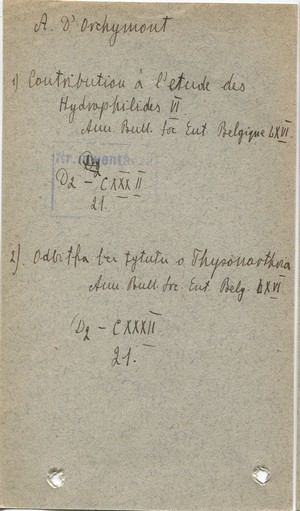 A. D'Orchymont
1) Contribution à l'etude des
Hydrophilides VI
Ann. Bull. Soc. Ent. Belgique LXVI.
D2 – CXXXII
21.
2) Odbitka bez tytułu o Thysonarthra
Ann. Bull. Soc. Ent. Belg. LXVI
D2 – CXXXII
21.